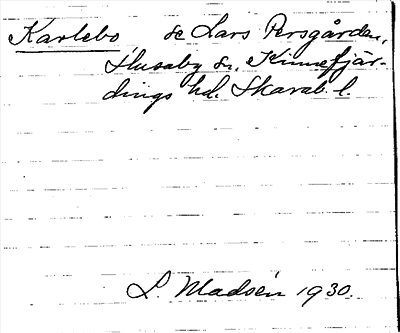 Karlebo se Lars Persgården,
Husaby sn, Kinnefjär-
dings hd. Skarab. l.
L. Madsén 1930.